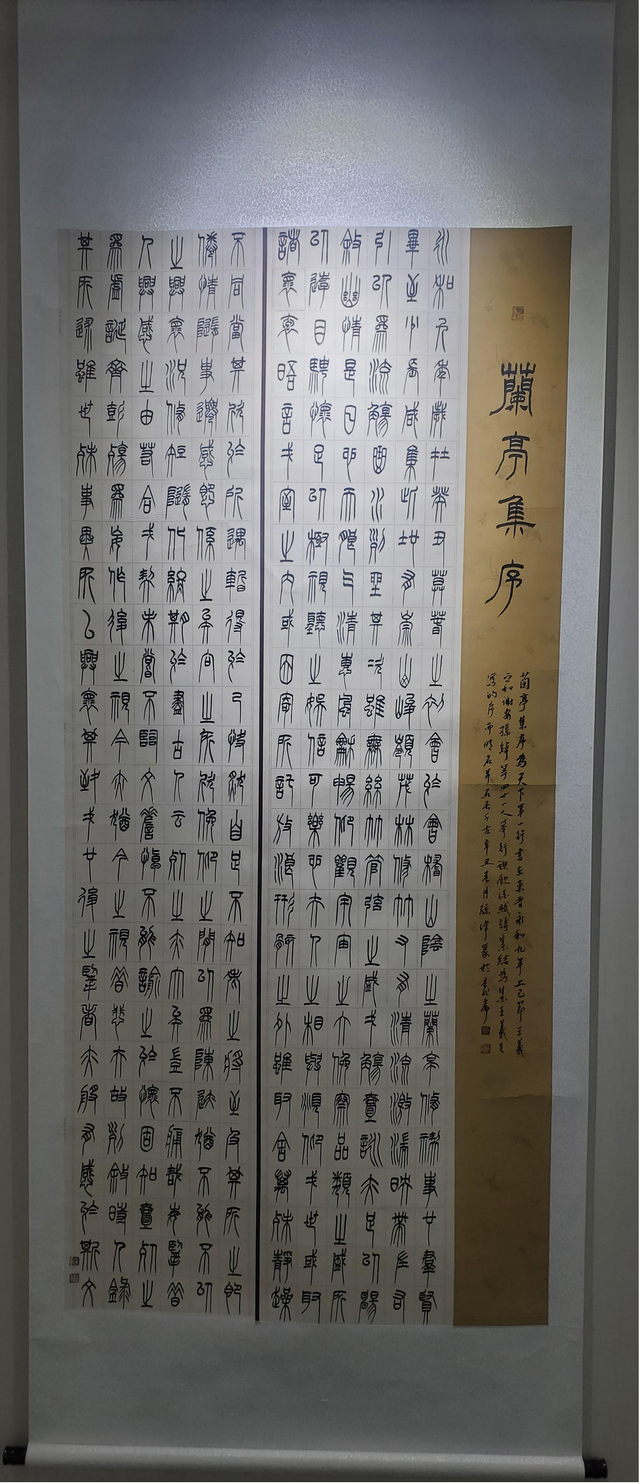 蘭亭集序
蘭亭集序為天下第一行書在東晉永和九年上巳節王羲
之和謝安孫綽等四十一人舉行禊飲賦詩集結為集王羲之
寫的序千古辛丑春月篆於
永和九年歲在癸丑暮春之初會於會稽山陰之蘭亭脩禊事也羣賢
畢至少長咸集此地有崇山峻領茂林脩竹又有清流激湍映帶左右
引以為流觴曲水列坐其次雖無絲竹管弦之盛一觴壹詠亦足以暢
敘幽情是日也天朗氣清惠風和暢仰觀宇宙之大俯察品類之盛所
以遊目騁懷足以極視聽之娛信可樂也夫人之相與俯仰一世或取
諸懷抱晤言一室之內或因寄所託放浪形骸之外雖取舍萬殊靜躁
不同當其欣於所遇暫得於己快然自足不知老之將至及其所之既
倦情隨事遷感慨係之矣向之所欣俛仰之間以為陳跡猶不能不以
之興懷況脩短隨化終期於盡古人云死生亦大矣豈不痛哉每覽昔
人興感之由若合一契未嘗不臨文嗟悼不能諭之於懷固知壹死生
為虛誕齊彭殤為妄作後之視今亦猶今之視昔悲夫故列敘時人錄
其所述雖世殊事異所以興懷其致一也後之覽者亦將有感於斯文